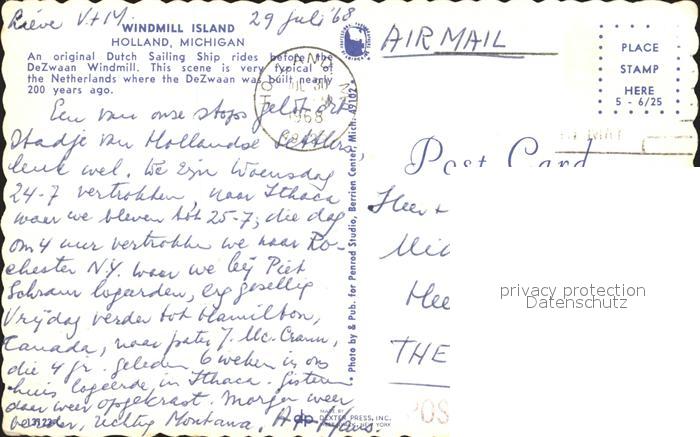 Lieve V+M.
29 Juli '68
WINDMILL ISLAND
HOLLAND, MICHIGAN
An original Dutch Sailing Ship rides before the
DeZwaan Windmill. This scene is very typical of
the Netherlands where the DeZwaan was built nearly
200 years ago.
Een van onze stops geldt dit
Stadje van Hollandse Settlers,
leuk wel. We zijn Woensdag
24-7 vertrokken, naar Ithaca
waar we bleven tot 25-7; die dag
om 4 uur vertrokken we naar Ro-
chester N.Y. waar we bij Piet
Schram logeerden, erg gesellig
Vrijdag verder tot Hamilton,
Canada, naar pater J. Mc.Crann,
die 4 jr. geleden 6 weken in ons
huis logeerde, in Ithaca. Gisteren
daar weer opgekrast. Morgen weer
verder, richting Montana.
HOLLAND
JUL 30
1968
Photo by & Pub. for Penrod Studio, Berrien Center, Mich. 49102
MADE BY
dp DEXTER PRESS, INC.
NEW YORK
AIR MAIL
PLACE
STAMP
HERE
5 - 6/25
Post Card
Heer +
Mee
THE
privacy protection
Datenschutz